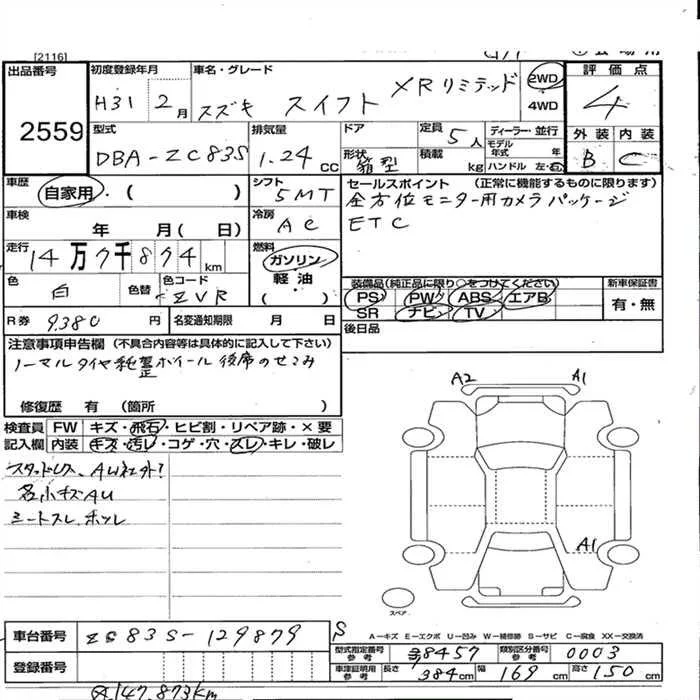 [2116]
出品番号 2559
初度登録年月 H31 2月
車名・グレード スズキ スイフト XRリミテッド
2WD
4WD
評価点 4
外装 内装
B C
型式 DBA-ZC83S
排気量 1.24 cc
ドア
形状 箱型
定員 5人
積載 kg
ディーラー・並行
モデル年式 年
ハンドル 左・右
車歴 自家用・( )
シフト 5MT
車検 年 月( 日)
冷房 AC
走行 14万7千874 km
燃料 ガソリン
軽油
( )
色 白 色替
色コード ZVR
R券 9380円
名変通知期限 月 日
セールスポイント (正常に機能するものに限ります)
全方位モニター用カメラパッケージ
ETC
装備品(純正品に限り○をつけてください)
PS PW ABS エアB
SR ナビ TV
新車保証書
有・無
後日品
注意事項申告欄 (不具合内容等は具体的に記入して下さい)
ノーマルタイヤ純正ホイール後席のせこみ
修復歴 有 (箇所 )
検査員 FW キズ・飛石・ヒビ割・リペア跡・×要
記入欄 内装 キズ・汚レ・コゲ・穴・スレ・キレ・破レ
スタッドレス、AW社外?
各小キズAU
シートスレ、ホツレ
A2 A1
A1
スペア
A-キズ E-エクボ U-凹み W-補修跡 S-サビ C-腐食 XX-交換済
車台番号 ZC83S-129879
登録番号
型式指定番号 参考 38457
類別区分番号 参考 0003
車庫証明用 参考 長さ 384cm 幅 169cm 高さ 150cm
147,873km